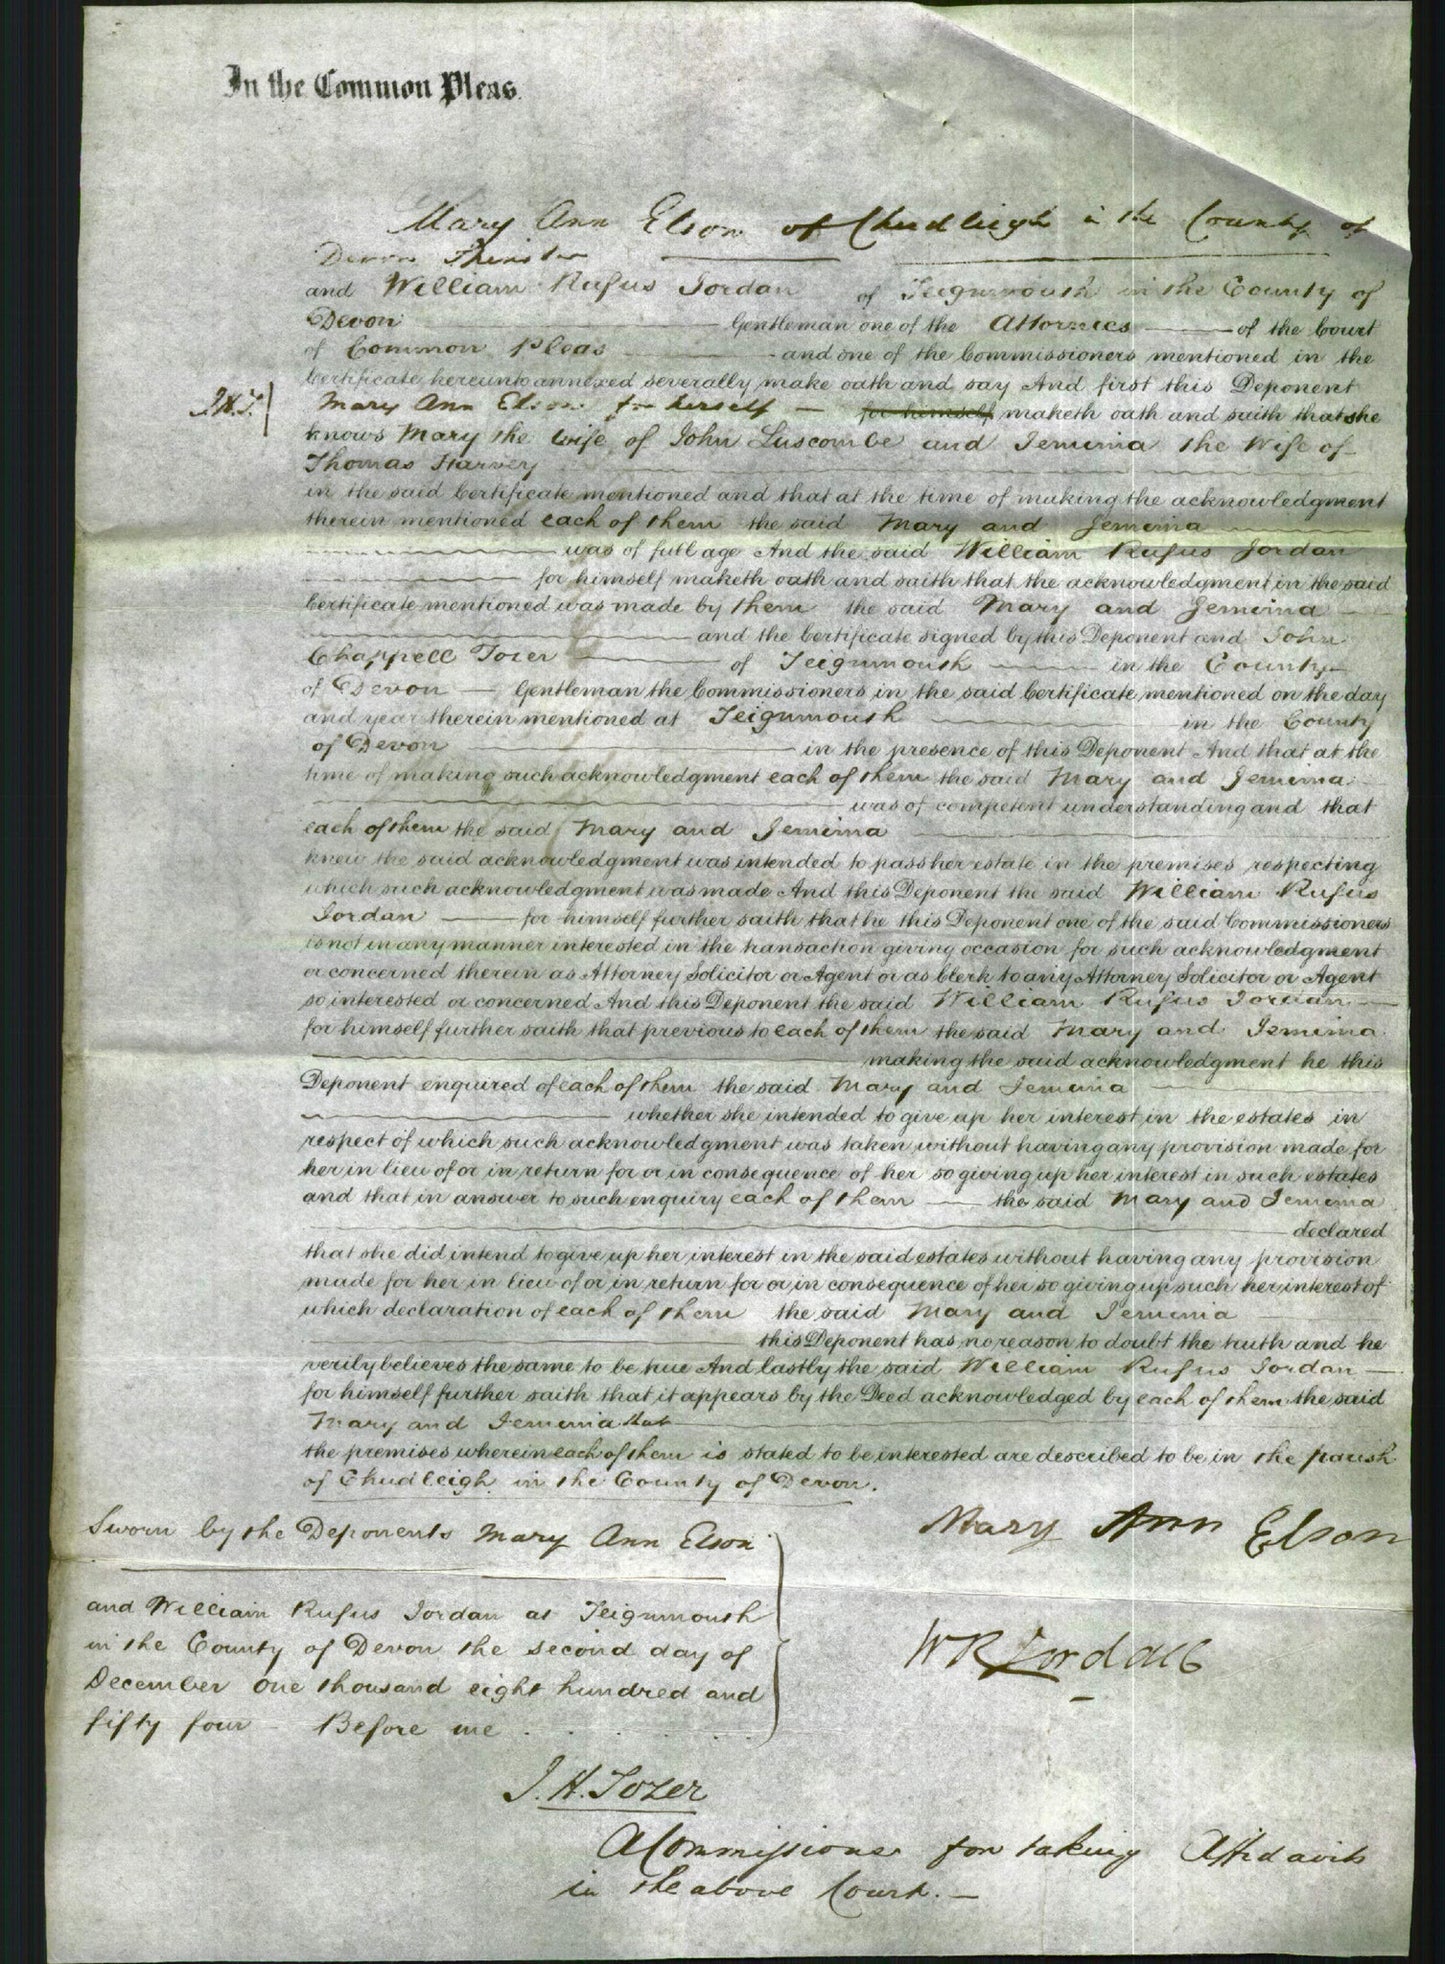 In the Common Pleas.
Mary Ann Elson of Chudleigh in the County of
Devon Spinster
and William Rufus Jordan of Teignmouth in the County of
Devon Gentleman one of the Attornies of the Court
of Common Pleas and one of the Commissioners mentioned in the
Certificate hereunto annexed severally make oath and say And first this Deponent
J.H.T. Mary Ann Elson for herself for himself maketh oath and saith that she
knows Mary the Wife of John Luscombe and Jemima the Wife of
Thomas Harvey
in the said Certificate mentioned and that at the time of making the acknowledgment
therein mentioned each of them the said Mary and Jemima
was of full age And the said William Rufus Jordan
for himself maketh oath and saith that the acknowledgment in the said
Certificate mentioned was made by them the said Mary and Jemima
and the Certificate signed by this Deponent and John
Chappell Tozer of Teignmouth in the County
of Devon Gentleman the Commissioners in the said Certificate mentioned on the day
and year therein mentioned at Teignmouth in the County
of Devon in the presence of this Deponent And that at the
time of making such acknowledgment each of them the said Mary and Jemima
was of competent understanding and that
each of them the said Mary and Jemima
knew the said acknowledgment was intended to pass her estate in the premises respecting
which such acknowledgment was made And this Deponent the said William Rufus
Jordan for himself further saith that he this Deponent one of the said Commissioners
is not in any manner interested in the transaction giving occasion for such acknowledgment
or concerned therein as Attorney Solicitor or Agent or as Clerk to any Attorney Solicitor or Agent
so interested or concerned And this Deponent the said William Rufus Jordan
for himself further saith that previous to each of them the said Mary and Jemima
making the said acknowledgment he this
Deponent enquired of each of them the said Mary and Jemima
whether she intended to give up her interest in the estates in
respect of which such acknowledgment was taken without having any provision made for
her in lieu of or in return for or in consequence of her so giving up her interest in such estates
and that in answer to such enquiry each of them the said Mary and Jemima
declared
that she did intend to give up her interest in the said estates without having any provision
made for her in lieu of or in return for or in consequence of her so giving up such her interest of
which declaration of each of them the said Mary and Jemima
this Deponent has no reason to doubt the truth and he
verily believes the same to be true And lastly the said William Rufus Jordan
for himself further saith that it appears by the Deed acknowledged by each of them the said
Mary and Jemima that
the premises wherein each of them is stated to be interested are described to be in the parish
of Chudleigh in the County of Devon.
Sworn by the Deponents Mary Ann Elson
and William Rufus Jordan at Teignmouth
in the County of Devon the second day of
December One thousand eight hundred and
fifty four Before me
Mary Ann Elson
W R Jordan
J. H. Tozer
A Commissioner for taking Affidavits
in the above Court.